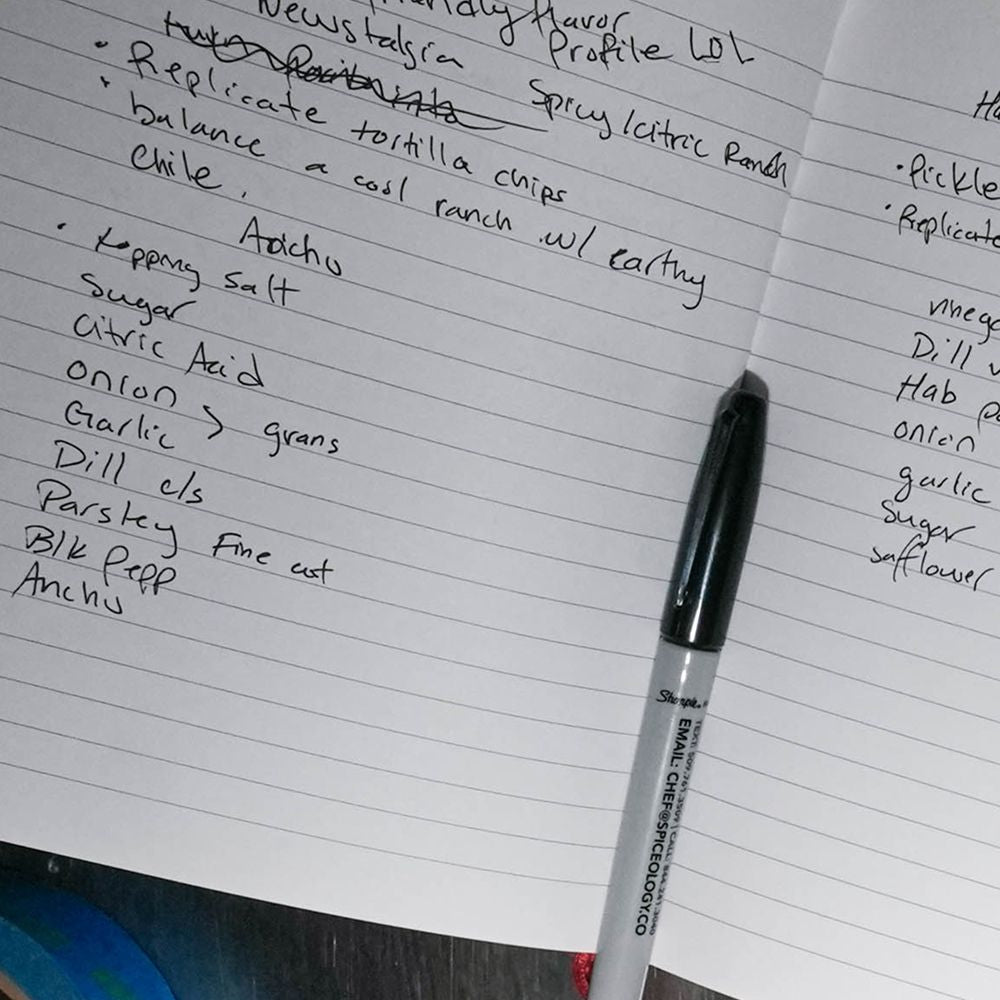 Flavor
Newstalgia Profile LOL
Spicy/citric Ranch
• Replicate tortilla chips
• balance a cool ranch w/ earthy
chile.
Ancho
• topping salt
Sugar
Citric Acid
onion > grans
Garlic
Dill c/s
Parsley Fine cut
Blk Pepp
Ancho
• Pickle
• Replicate
vinega
Dill
Hab
onion
garlic
Sugar
safflower
Sharpie
EMAIL: CHEF@SPICEOLOGY.CO